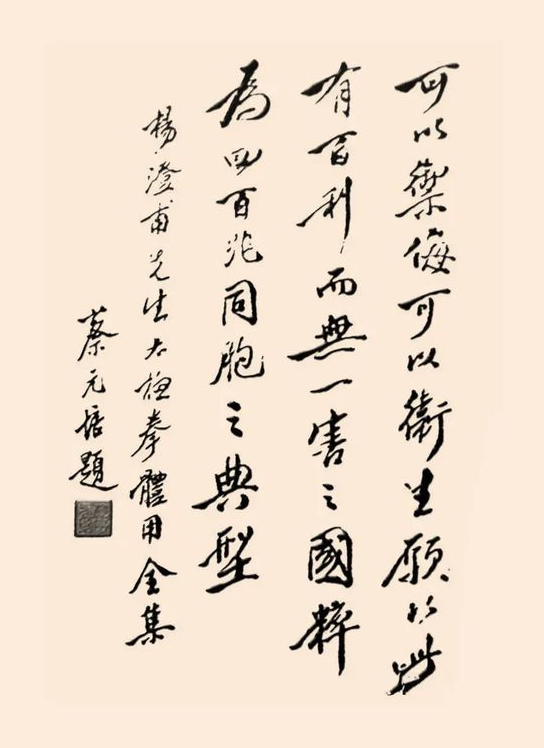 可以禦侮可以衛生願以此
有百利而無一害之國粹
為四百兆同胞之典型
楊澄甫先生太極拳體用全集
蔡元培題